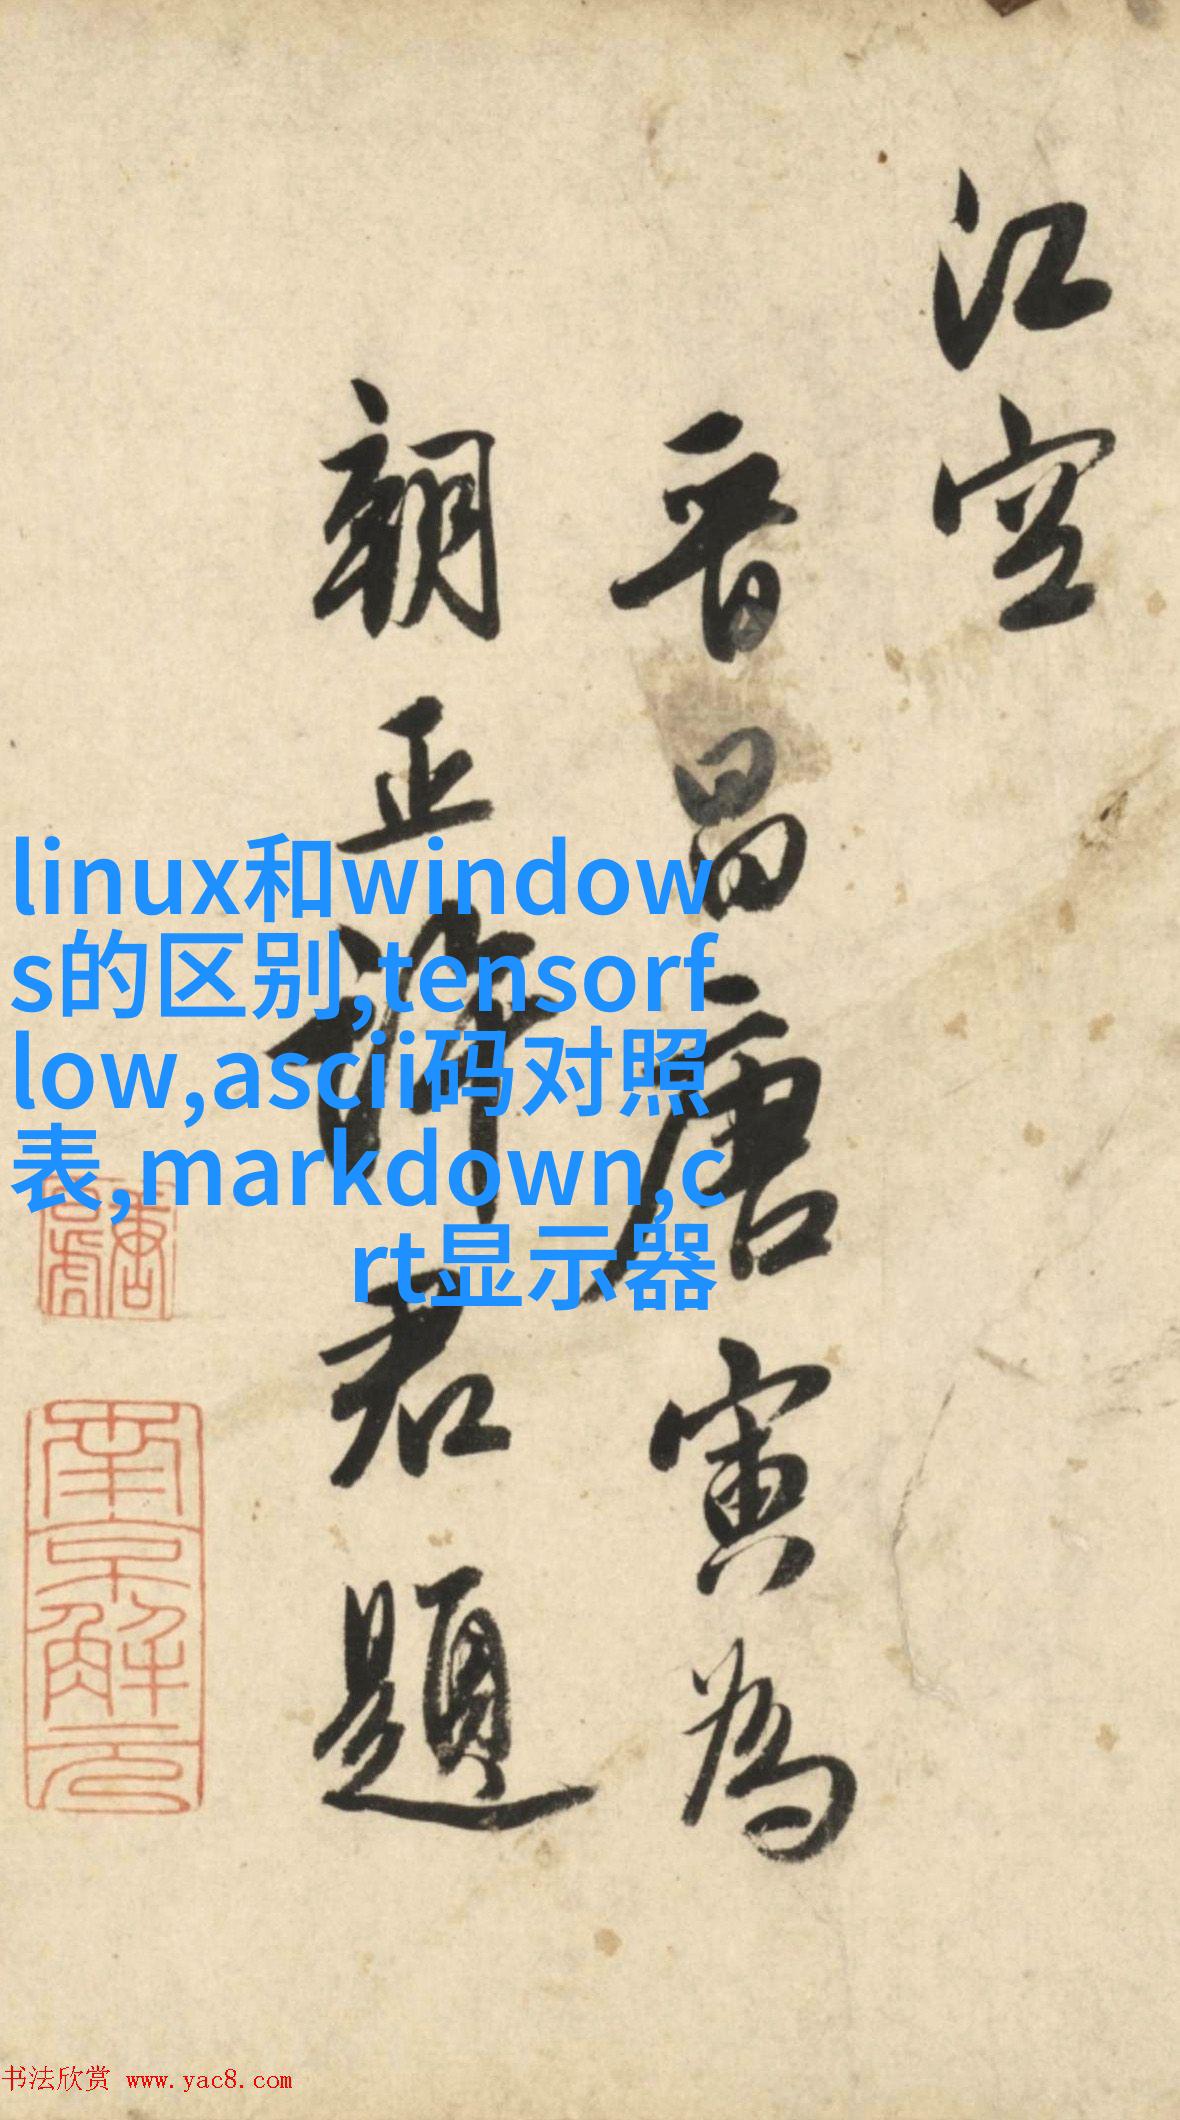 江空
晋昌唐寅為
朝正詞君題
linux和window
s的区别,tensorf
low,ascii码对照
表,markdown,c
rt显示器
南京解元
书法欣赏 www.yac8.com